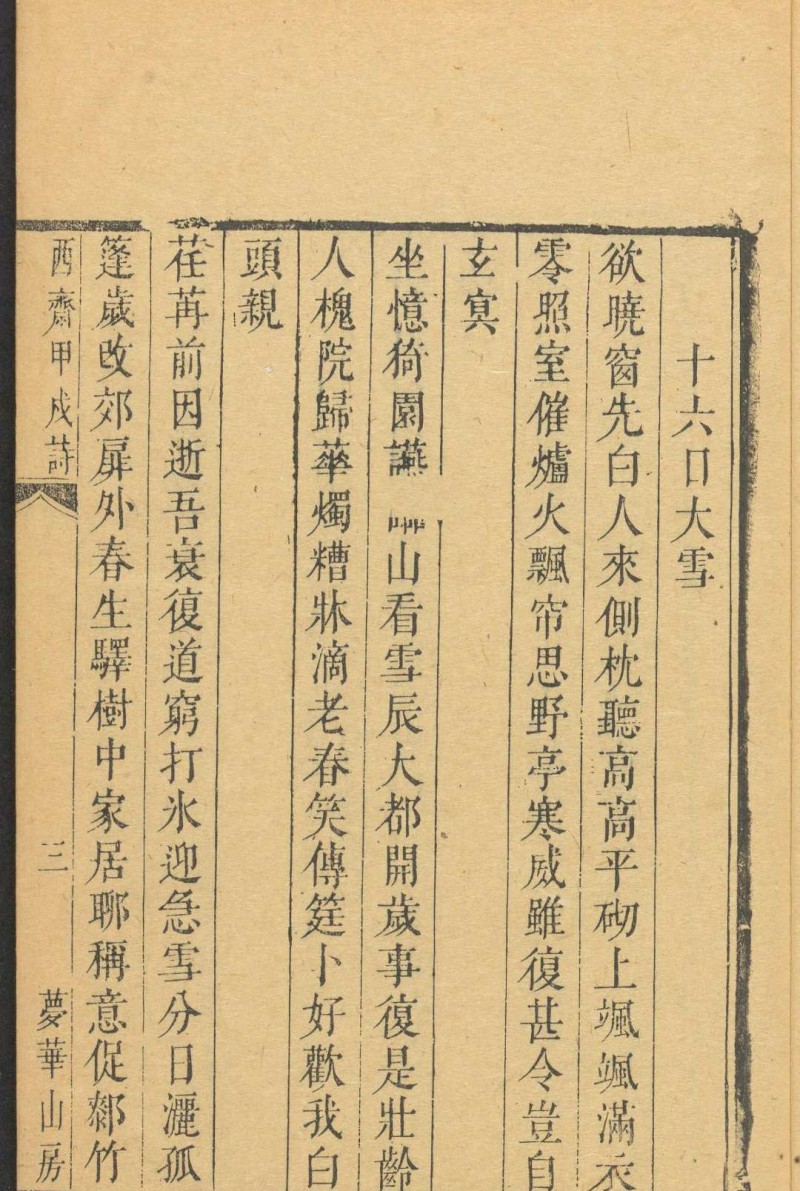 十六日大雪
欲曉窗先白人來側枕聽高高平砌上颯颯滿衣
零照室催爐火飄帘思野亭寒威雖復甚令豈自
玄冥
坐憶猗園讌山看雪辰大都開歲事復是壯齡
人槐院歸華燭糟牀滴老春笑傳筳卜好歡我白
頭親
荏苒前因逝吾衰復道窮打氷迎急雪分日灑孤
篷歲改郊扉外春生驛樹中家居聊稱意促鄰竹
西齋甲戍詩 三 夢華山房